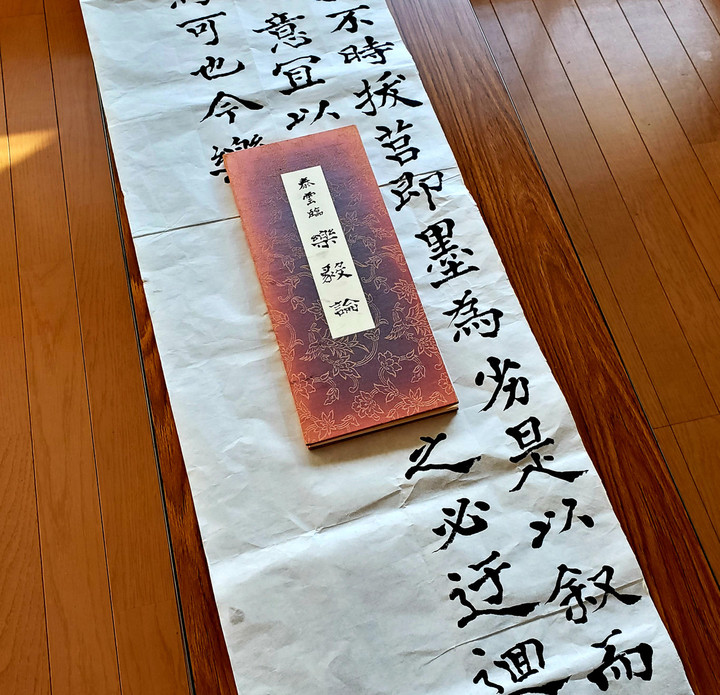 不時拔莒即墨為劣是以叙而
意冝以
之必迂迴
可也今樂
泰雲臨 樂毅論